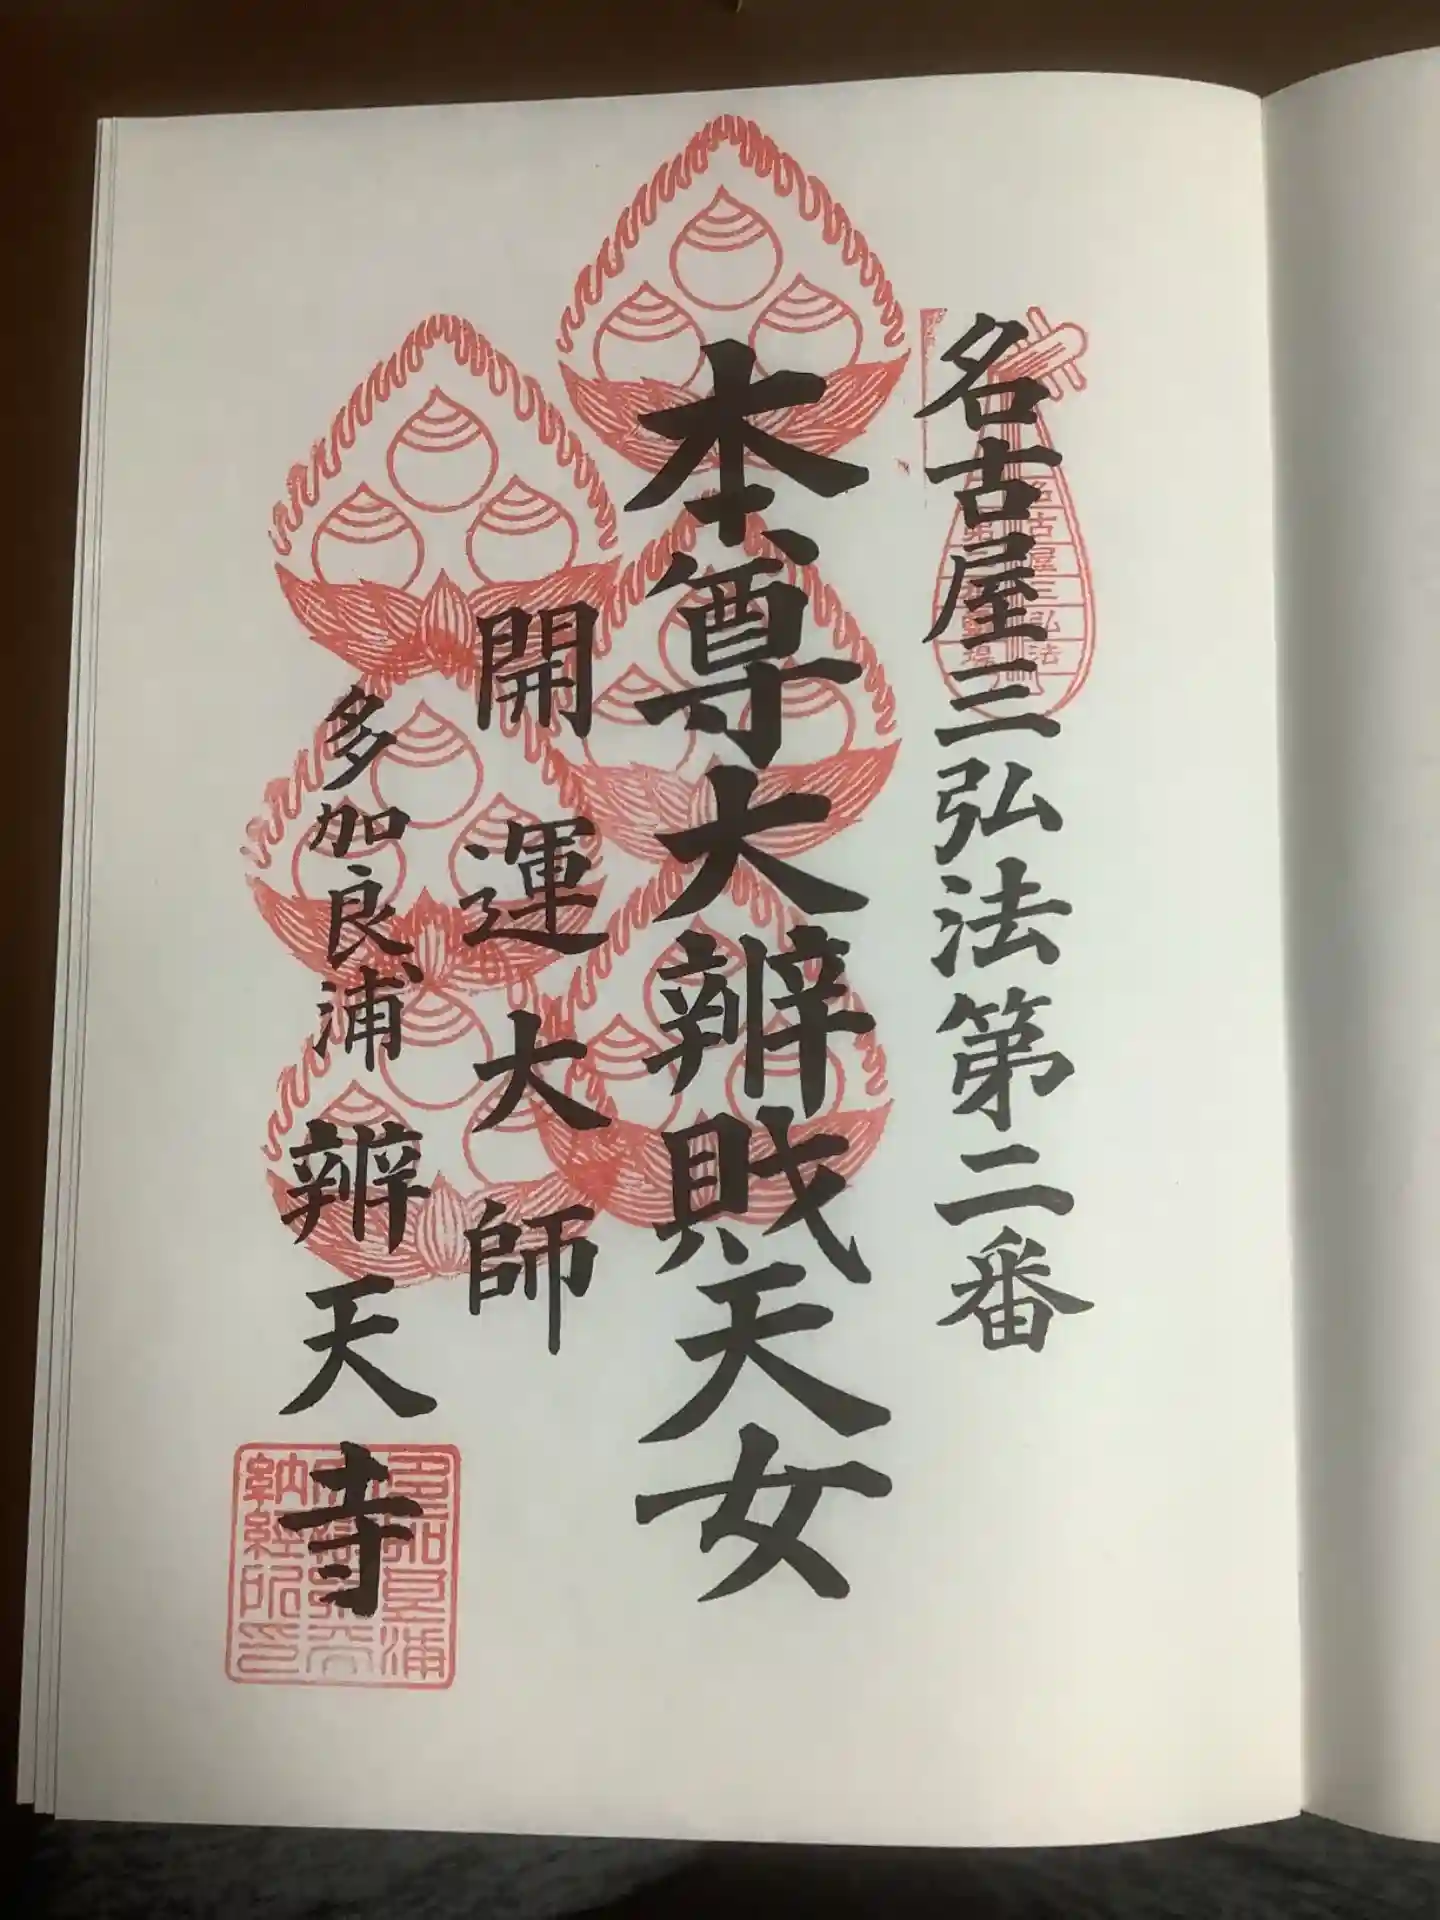 名古屋三弘法第二番
本尊大辨財天女
開運大師
多加良浦 辨天寺
名古屋三弘法
納経所印